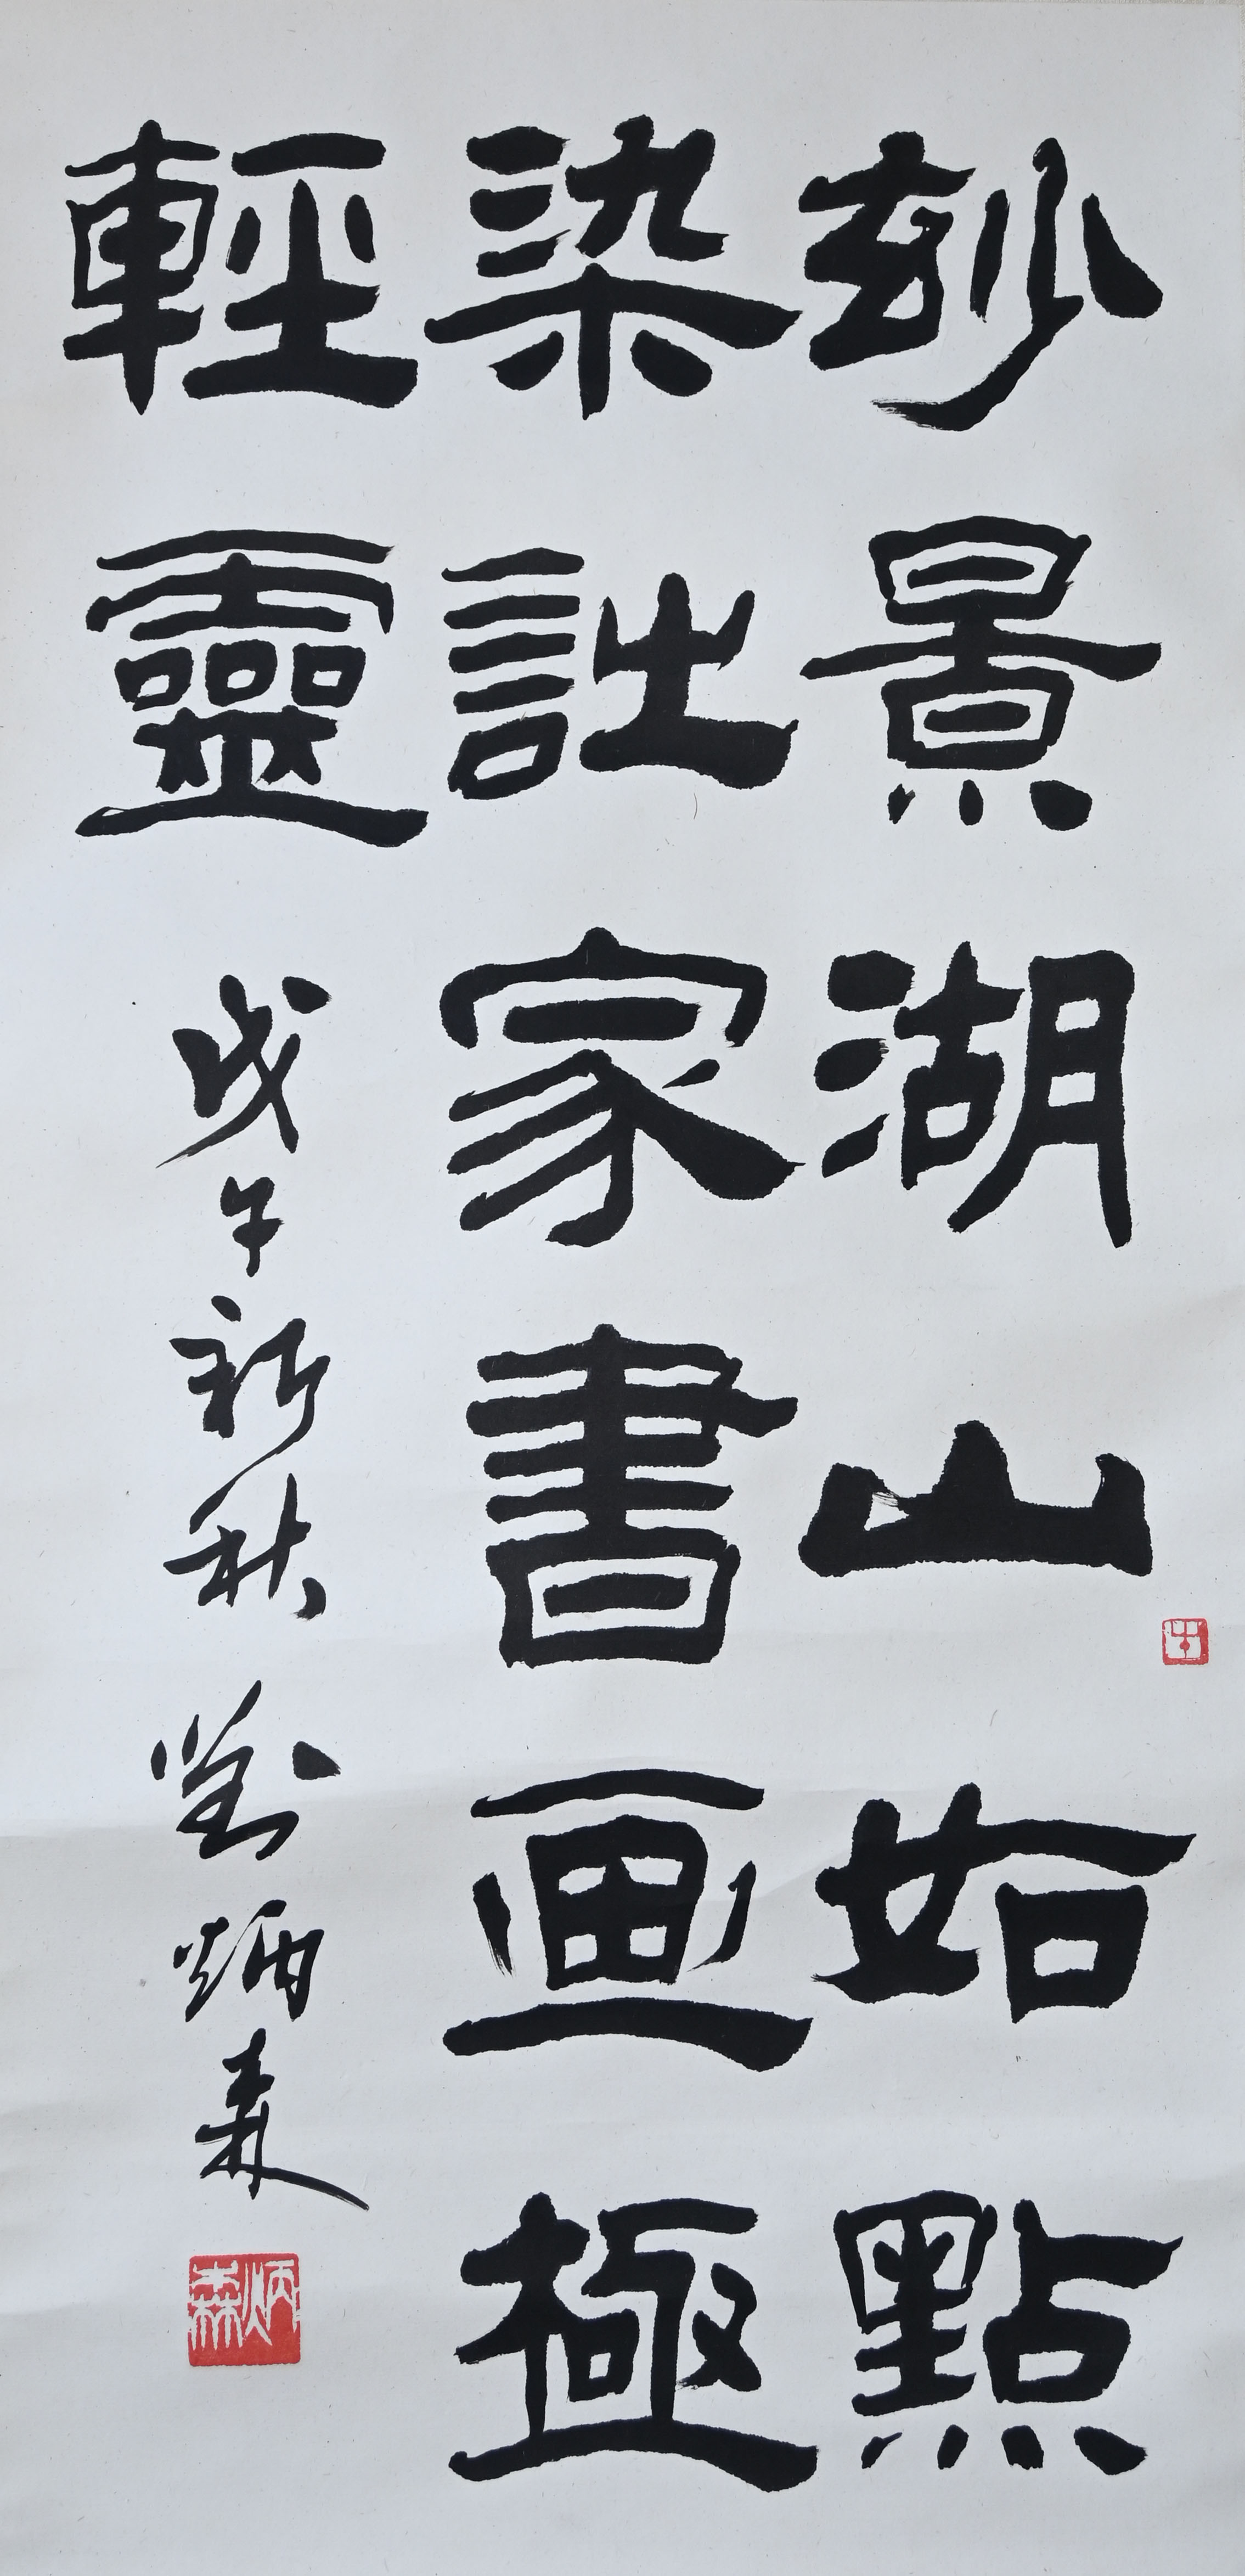 玅景湖山如點
染詩家書画極
輕靈 戊午新秋 劉炳森
炳森